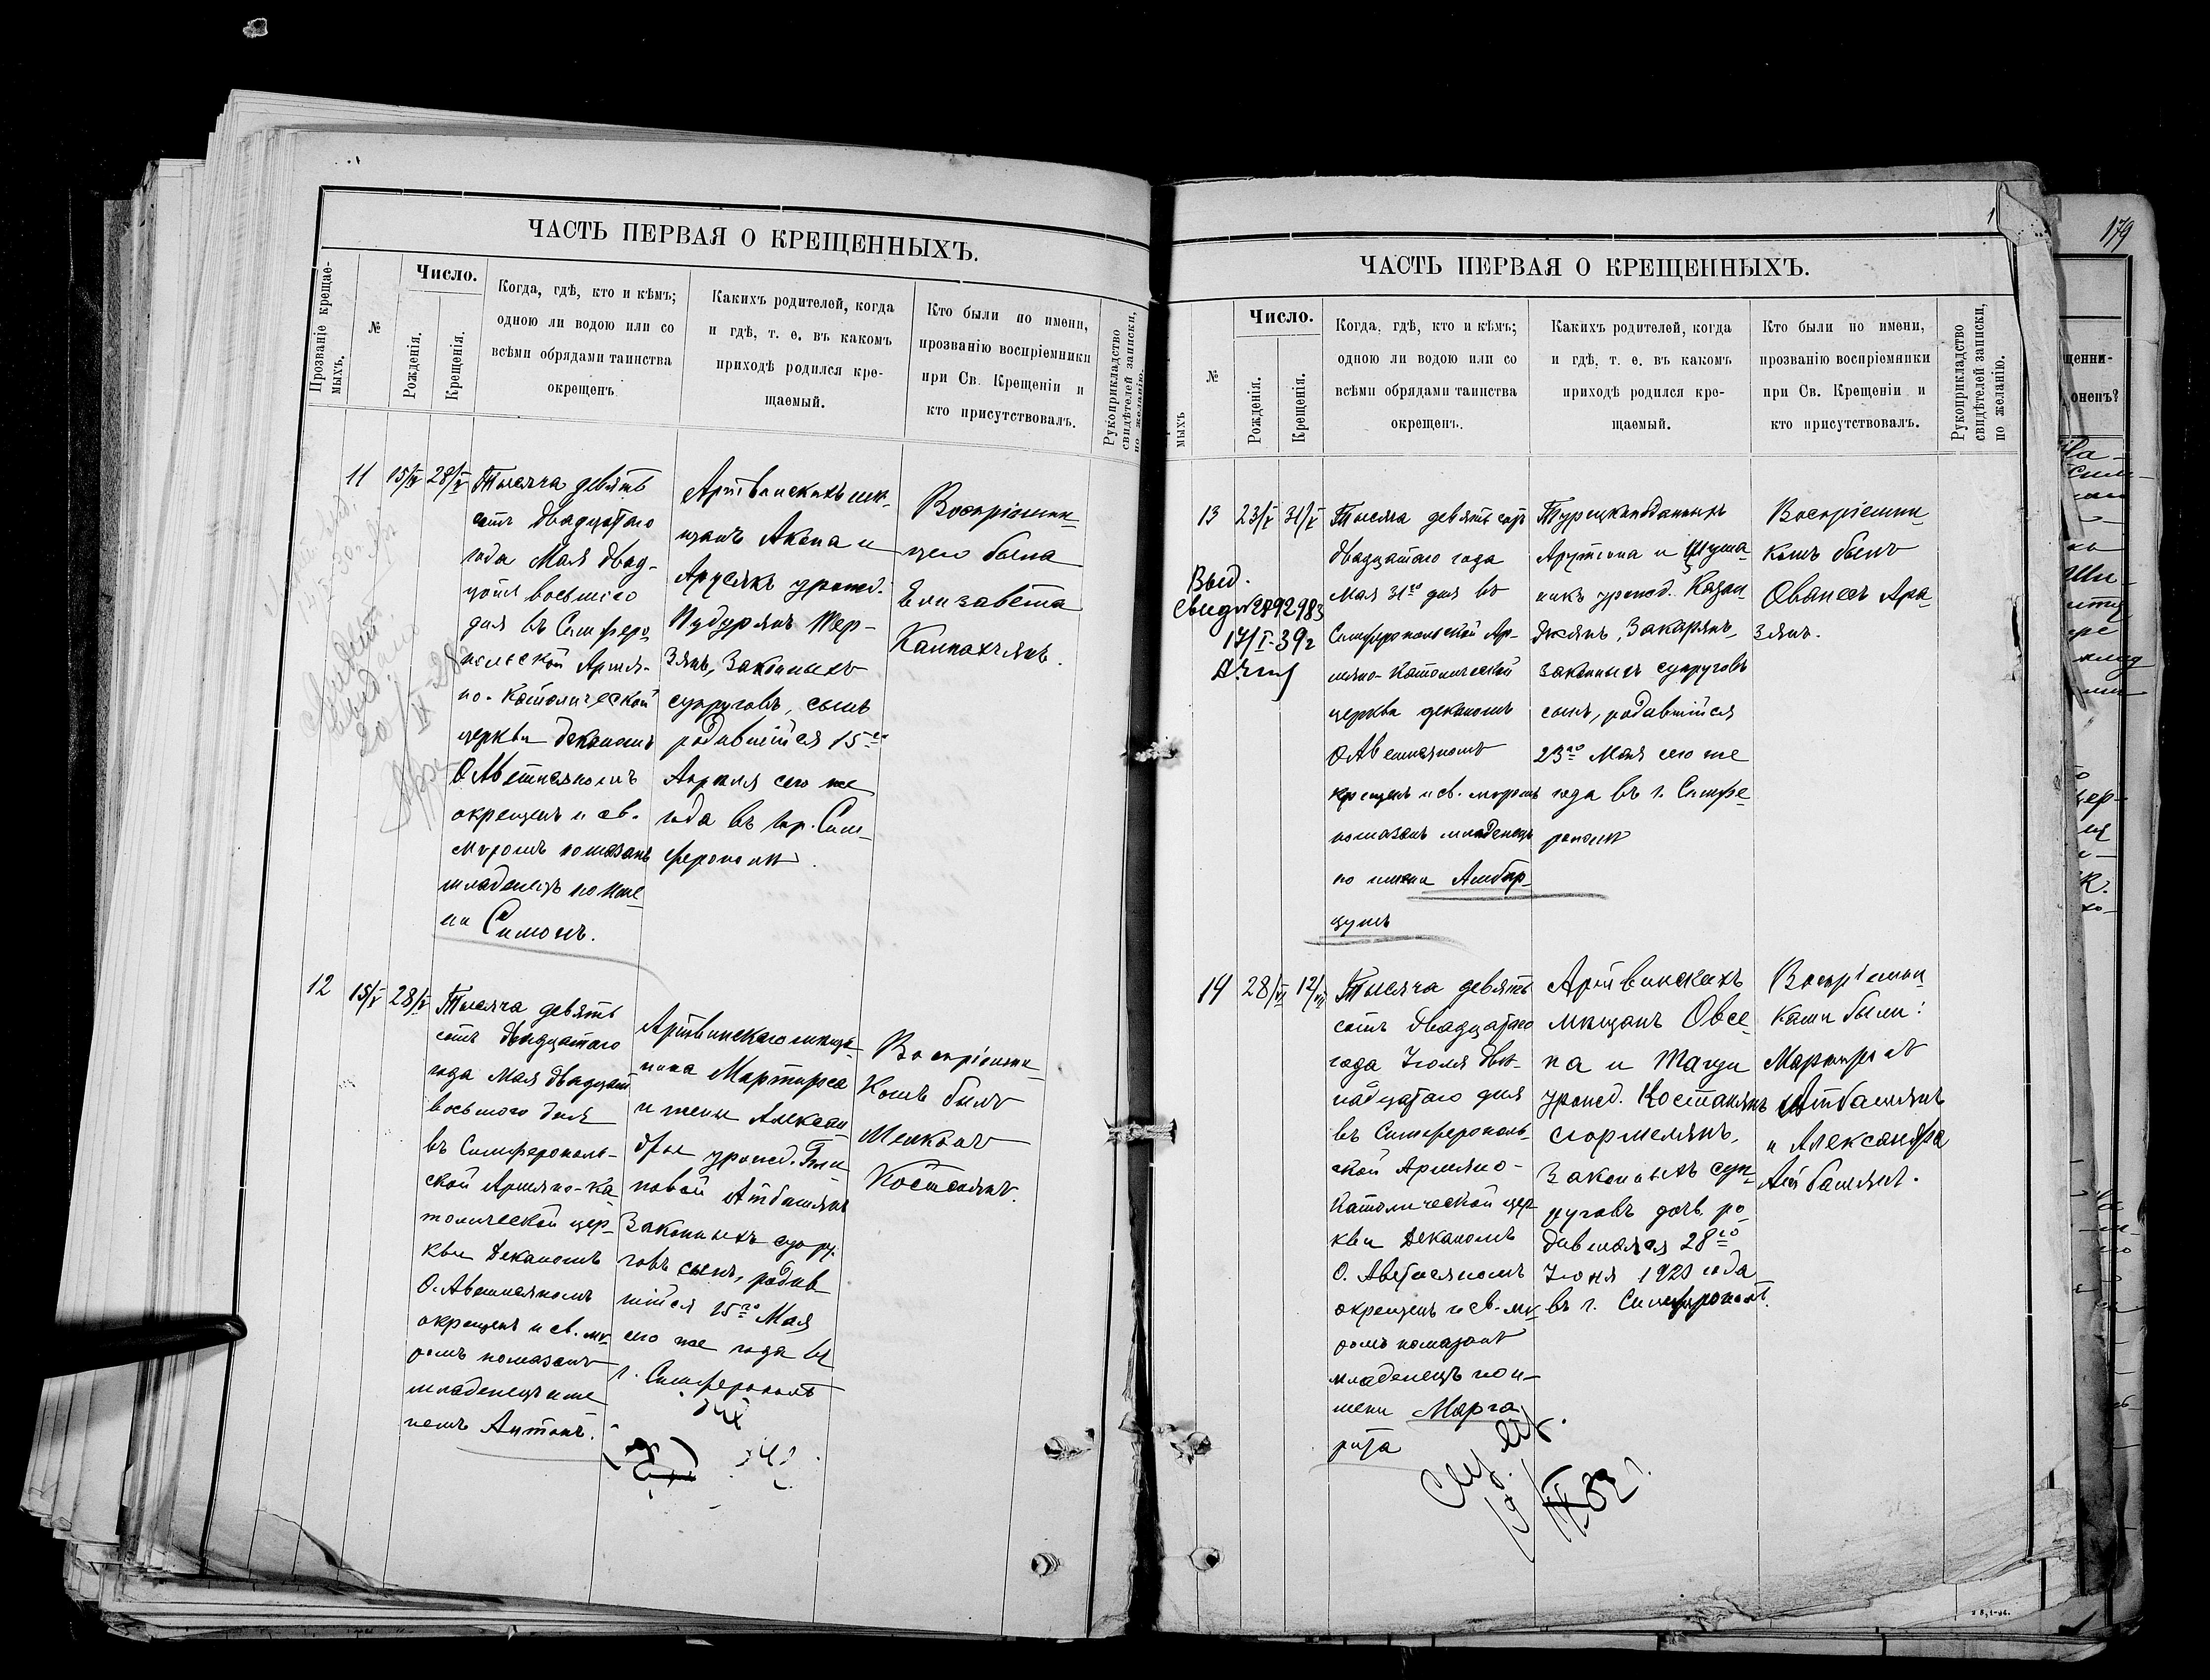 ЧАСТЬ ПЕРВАЯ О КРЕЩЕННЫХЪ.
Прозваніе крещае-
мыхъ.
№
Число.
Рожденія.
Крещенія.
Когда, гдѣ, кто и кѣмъ;
одною ли водою или со
всѣми обрядами таинства
окрещенъ.
Какихъ родителей, когда
и гдѣ, т. е. въ какомъ
приходѣ родился кре-
щаемый.
Кто были по имени,
прозванію воспріемники
при Св. Крещеніи и
кто присутствовалъ.
Рукоприкладство
свидѣтелей записки,
по желанію.
11
15/IV
28/V
Тысяча девять
сотъ двадцатаго
года Мая двад-
цать восьмого
дня въ Симферо-
польской Армя-
но-Католической
церкви деканомъ
О. Аветисяномъ
окрещенъ и св.
муромъ помазанъ
младенецъ по име-
ни Симонъ.
Артвинскихъ мѣ-
щанъ Акопа и
Арусякъ урожд.
Тер-
зянъ, законныхъ
супруговъ, сынъ
родившійся 15го
Апрѣля сего же
года въ гор. Сим-
ферополѣ.
Воспріемни-
цею была
Елизавета
Калпакчянъ.
12
15/V
28/V
Тысяча девять
сотъ двадцатаго
года Мая двадцать
восьмого дня
въ Симферополь-
ской Армяно-Ка-
толической цер-
кви Деканомъ
О. Аветисяномъ
окрещенъ и св. му-
ромъ помазанъ
младенецъ име-
немъ Антонъ.
Артвинскаго мѣща-
нина Мартироса
и жены Алексан-
дры урожд.
повой Атбашянъ
законныхъ супру-
говъ сынъ, родив-
шійся 15го Мая
сего же года въ
г. Симферополѣ
Воспріемни-
комъ былъ
Мелконъ
Костанянъ.
ЧАСТЬ ПЕРВАЯ О КРЕЩЕННЫХЪ.
мыхъ
№
Число.
Рожденія.
Крещенія.
Когда, гдѣ, кто и кѣмъ;
одною ли водою или со
всѣми обрядами таинства
окрещенъ.
Какихъ родителей, когда
и гдѣ, т. е. въ какомъ
приходѣ родился кре-
щаемый.
Кто были по имени,
прозванію воспріемники
при Св. Крещеніи и
кто присутствовалъ.
Рукоприкладство
свидѣтелей записки,
по желанію.
Выд.
13
23/V
31/V
Тысяча девять сотъ
двадцатаго года
Мая 31го дня въ
Симферопольской Ар-
мяно-Католической
церкви деканомъ
О. Аветисяномъ
крещенъ и св. муромъ
помазанъ младенецъ
по имени Амбар-
цумъ
Турецкоподданныхъ
Арутюна и Шуша-
никъ урожд. Казан-
джянъ, Закарянъ,
законныхъ супруговъ
сынъ, родившійся
23го Мая сего же
года въ г. Симфе-
рополѣ
Воспріемни-
комъ былъ
Ованесъ Ара-
зянъ.
14
28/VI
12/VII
Тысяча девять
сотъ двадцатаго
года Іюля двѣ-
надцатаго дня
въ Симферополь-
ской Армяно-
Католической цер-
кви Деканомъ
О. Аветисяномъ
окрещенъ и св. му-
ромъ помазанъ
младенецъ по и-
мени Марга-
рита
Артвинскихъ
мѣщанъ Овсе-
па и Тагуи
урожд. Костанянъ
законныхъ суп-
руговъ дочь ро-
дившаяся 28го
Іюня 1920 года
въ г. Симферополѣ.
Воспріемни-
ками были:
Мартиросъ
Атбашянъ
и Александра
Атбашянъ.
179